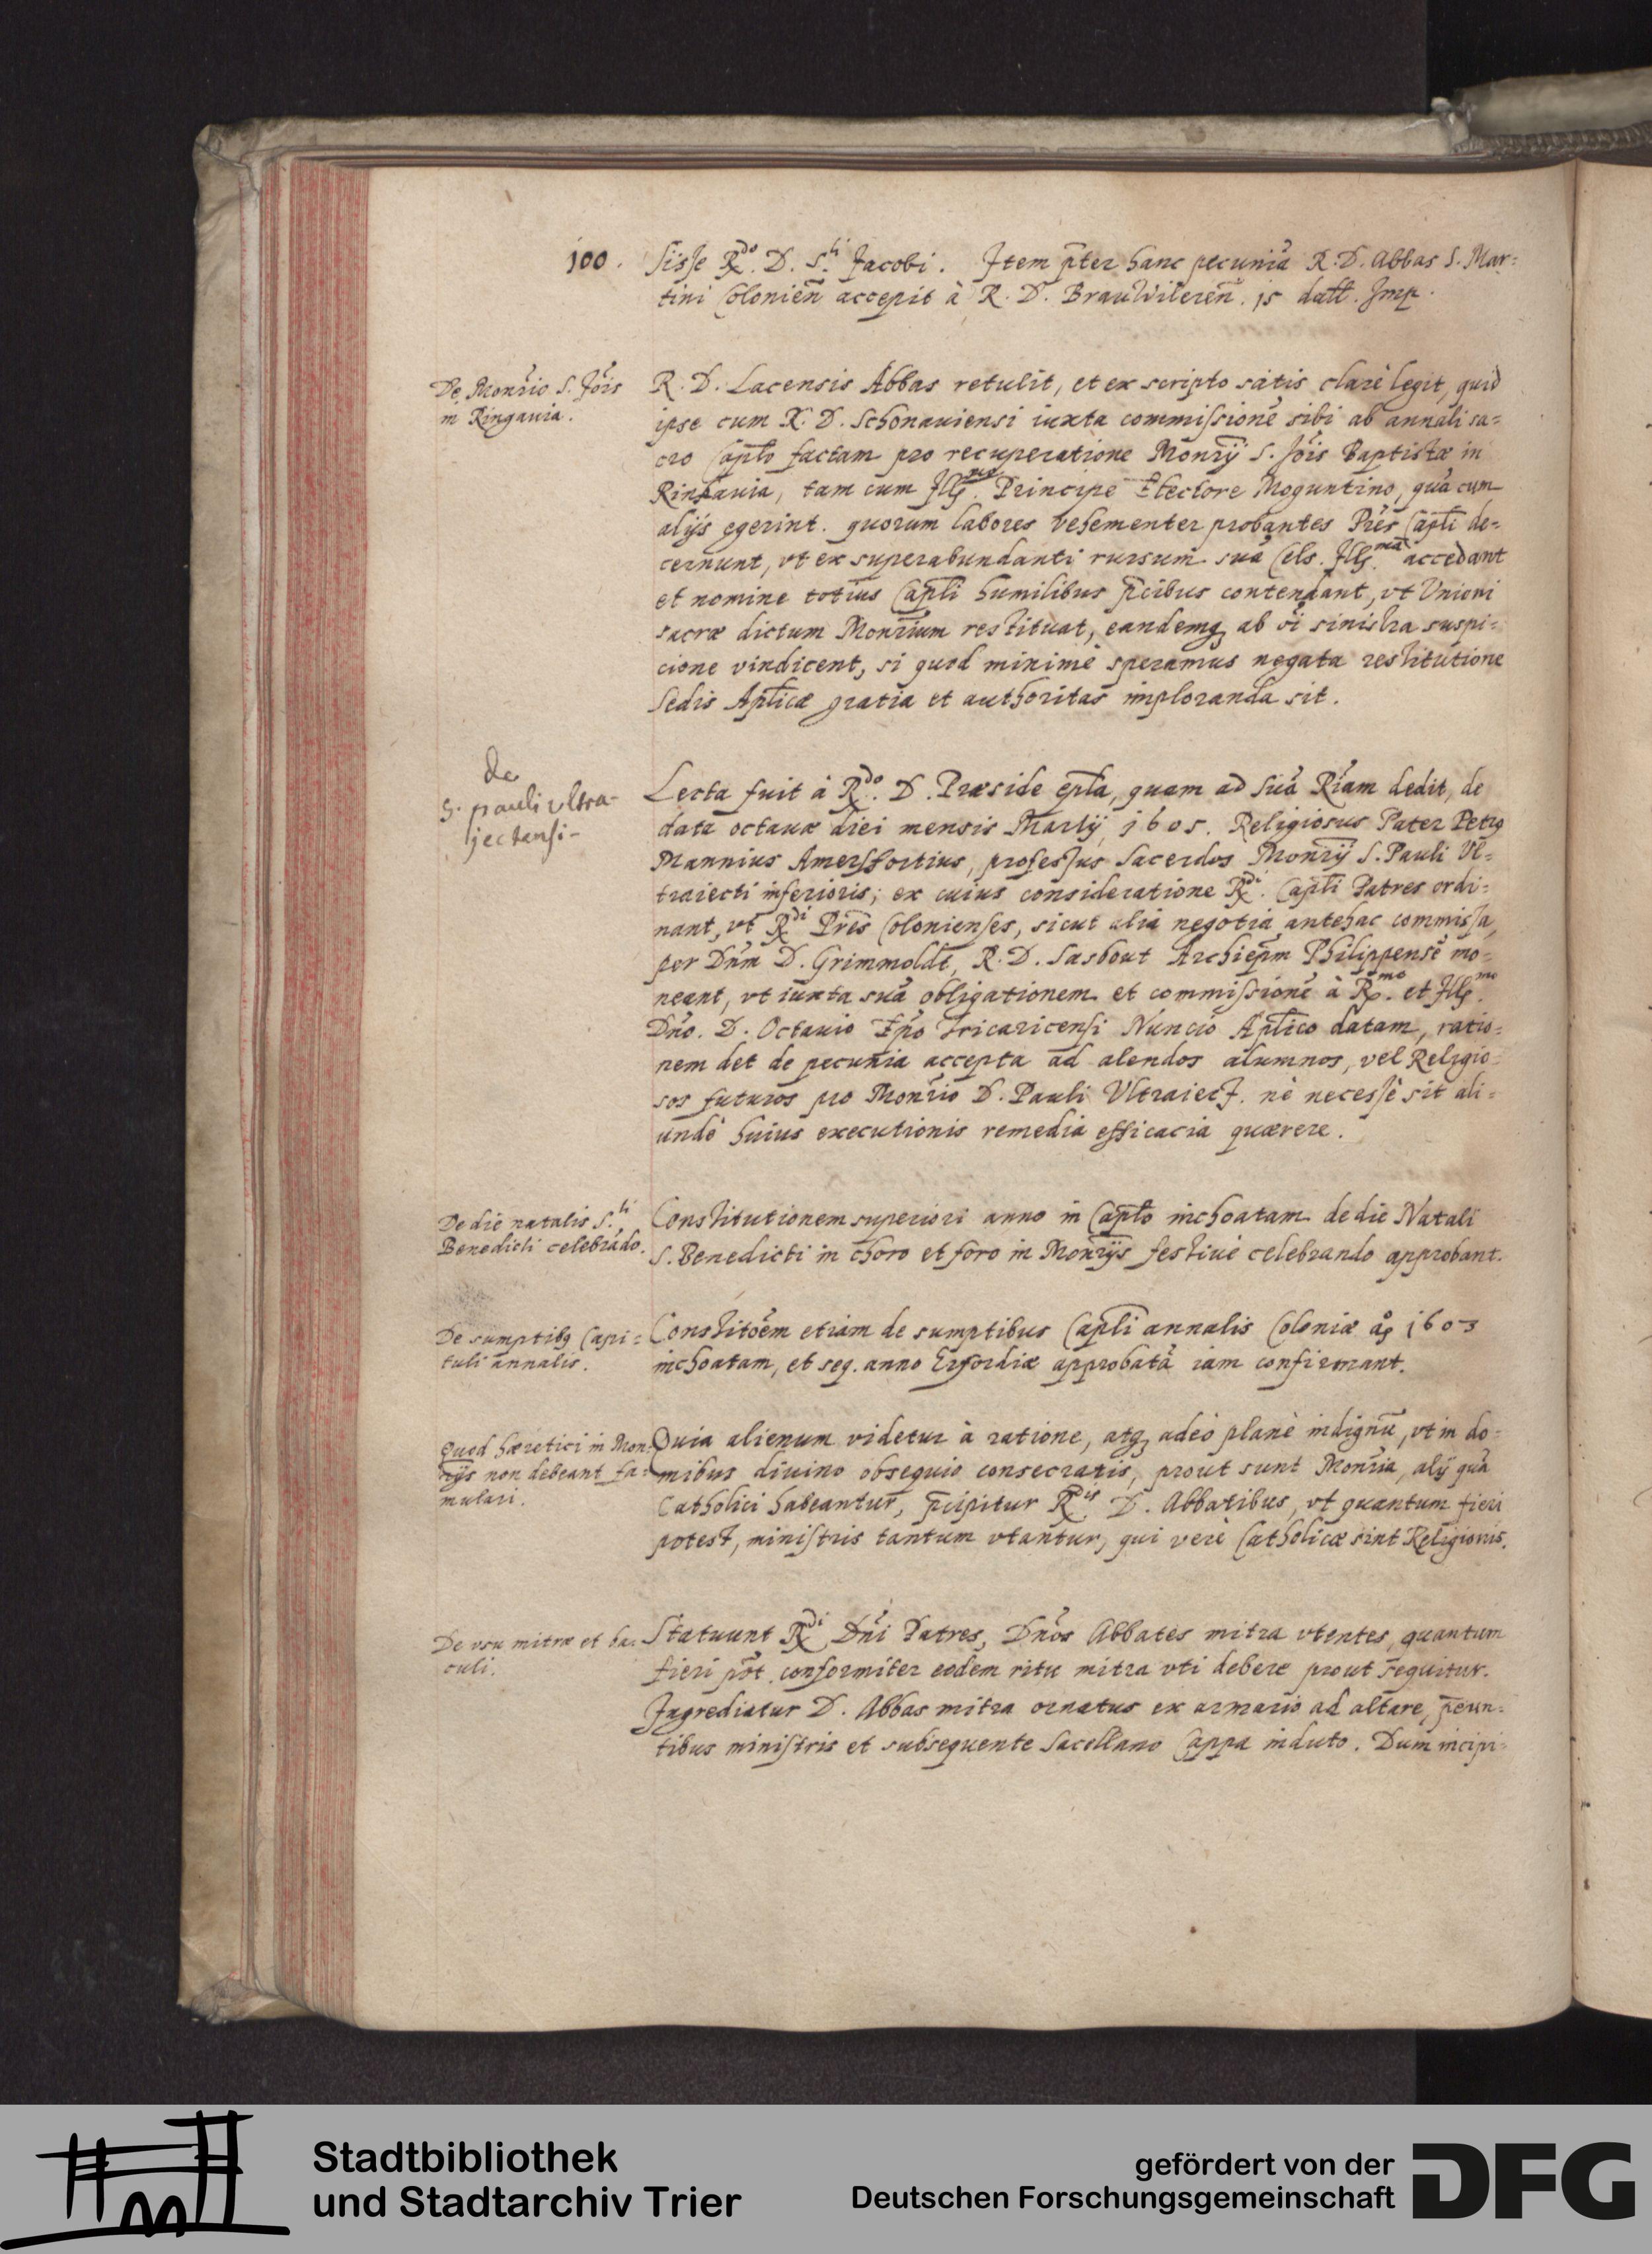 100. sisse R.do D. S.ti Jacobi. Item p̄ter hanc pecuniā R. D. Abbas S. Mar=
tini Colonien̄ accepit à R. D. Brauwileren̄. 15 dall. Imp.
De Monrio S. Jois
in Ringauia.
R. D. Lacensis Abbas retulit, et ex scripto satis clarè legit, quid
ipse cum R. D. Schonauiensi iuxta commissionē sibi ab annali sa=
cro Caplo factam pro recuperatione Monrij S. Jois Baptistæ in
Rinkauia, tam cum Ill.mo Principe Electore Moguntino, quā cum
alijs egerint. quorum labores vehementer probantes Pres Capli de=
cernunt, vt ex superabundanti rursum suā Cels. Ill.mā accedant
et nomine totius Capli humilibus p̄cibus contendant, vt Unioni
sacræ dictum Monrium restituat, eandemq ab oi sinistra suspi=
cione vindicent, si quod minimè speramus negata restitutione
Sedis Aplicæ gratia et authoritas imploranda sit.
de
S. pauli vltra-
jectensi-
Lecta fuit à R.do D. Præside epla, quam ad suā Rīam dedit, de
data octauæ diei mensis Martij 1605. Religiosus Pater Petrq
Mannius Amersfortius, professus Sacerdos Monrij S. Pauli Vl=
traiecti inferioris; ex cuius consideratione R.di Capli Patres ordi=
nant, vt R.di Pres Colonienses, sicut alia negotia antehac commissa,
per Dnm D. Grimmoldt, R. D. Sasbout Archiepm Philippensē mo=
neant, vt iuxta suā obligationem et commissionē à R.mo et Ill.mo
Dno. D. Octauio Epo Tricaricensi Nuncio Aplico datam, ratio=
nem det de pecunia accepta ad alendos alumnos, vel Religio=
sos futuros pro Monrio D. Pauli Vltraiect. nè necessè sit ali=
undè huius executionis remedia efficacia quærere.
De die natalis S.ti
Benedicti celebrādo.
Constitutionem superiori anno in Caplo inchoatam de die Natali
S. Benedicti in choro et foro in Monrijs festiuè celebrando approbant.
De sumptibq Capi=
tuli annalis.
Constitōem etiam de sumptibus Capli annalis Coloniæ aō 1603
inchoatam, et seq. anno Erfordiæ approbatā iam confirmant.
Quod hæretici in Mon=
rijs non debeant fa=
mulari.
Quia alienum videtur à ratione, atq adeò planè indignū, vt in do=
mibus diuino obsequio consecratis, prout sunt Monria, alij quā
Catholici habeantur, p̄cipitur R.is D. Abbatibus, vt quantum fieri
potest, ministris tantum vtantur, qui verè Catholicæ sint Religionis.
De vsu mitræ et ba=
culi.
Statuunt R.di Dni Patres, Dnos Abbates mitra vtentes, quantum
fieri pōt. conformiter eodem ritu mitra vti debere prout sequitur.
Ingrediatur D. Abbas mitra ornatus ex armario ad altare, p̄eun=
tibus ministris et subsequente Sacellano Cappa induto. Dum incipi=
Stadtbibliothek
und Stadtarchiv Trier
gefördert von der
Deutschen Forschungsgemeinschaft
DFG